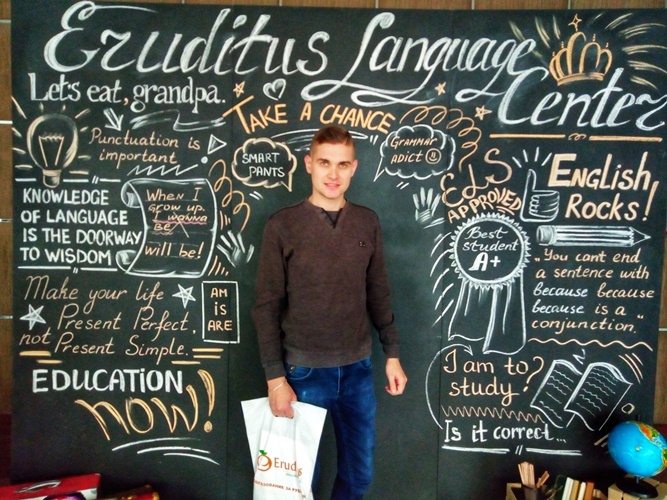 Eruditus Language
Center
Let's eat, grandpa.
TAKE A CHANCE
Punctuation is
important
!
SMART
PANTS
GRAMMAR
adict
KNOWLEDGE
OF LANGUAGE
IS THE DOORWAY
TO WISDOM
When I
grow up,
wanna
be
will be!
ELS
APPROVED
Best
student
A+
English
Rocks!
„You can't end
a sentence with
because because
because is a
conjunction.“
Make your life
Present Perfect,
not Present Simple.
AM
is
ARE
EDUCATION
NOW!
I am to
study?
Is it correct...
Erud